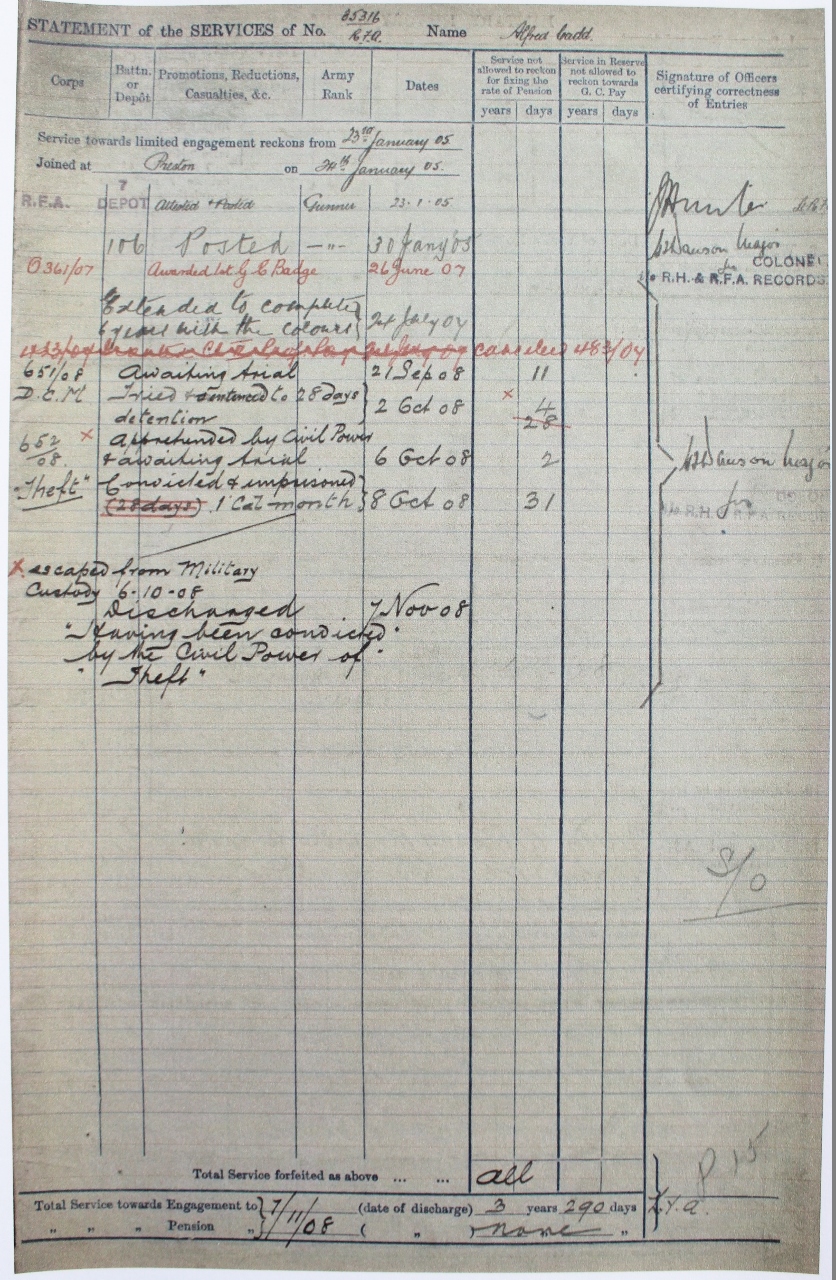 STATEMENT of the SERVICES of No. 35316 R.F.A. Name Alfred Cadd.
Corps
Battn. or Depôt
Promotions, Reductions, Casualties, &c.
Army Rank
Dates
Service not allowed to reckon for fixing the rate of Pension
years days
Service in Reserve not allowed to reckon towards G. C. Pay
years days
Signature of Officers certifying correctness of Entries
Service towards limited engagement reckons from 23rd January 05
Joined at Preston on 24th January 05.
R.F.A. 7 DEPOT Attested & Posted Gunner 23-1-05
J Hunter
106 Posted —"— 30 Jany '05
Dawson Major
O 361/07 Awarded 1st G C Badge 26 June 07
for COLONEL
i/c R.H. & R.F.A. RECORDS
Extended to complete
6 years with the colours 24 July 07
canceled 483/07
651/08 Awaiting trial 21 Sep 08 11
D.C.M Tried & sentenced to 28 days
detention 2 Oct 08 × 4
28
652/08. × Apprehended by Civil Power
& awaiting trial 6 Oct 08 2
Dawson Major
"Theft" Convicted & imprisoned
(28 days) 1 Cal month 8 Oct 08 31
for
i/c R.H. & R.F.A. RECORDS
× escaped from Military
Custody 6-10-08
Discharged 7 Nov 08
"Having been convicted"
by the Civil Power of "
" Theft "
S/O
P 15
Total Service forfeited as above ... ... all
Total Service towards Engagement to 7/11/08 (date of discharge) 3 years 290 days
" " Pension " ( " ) none "